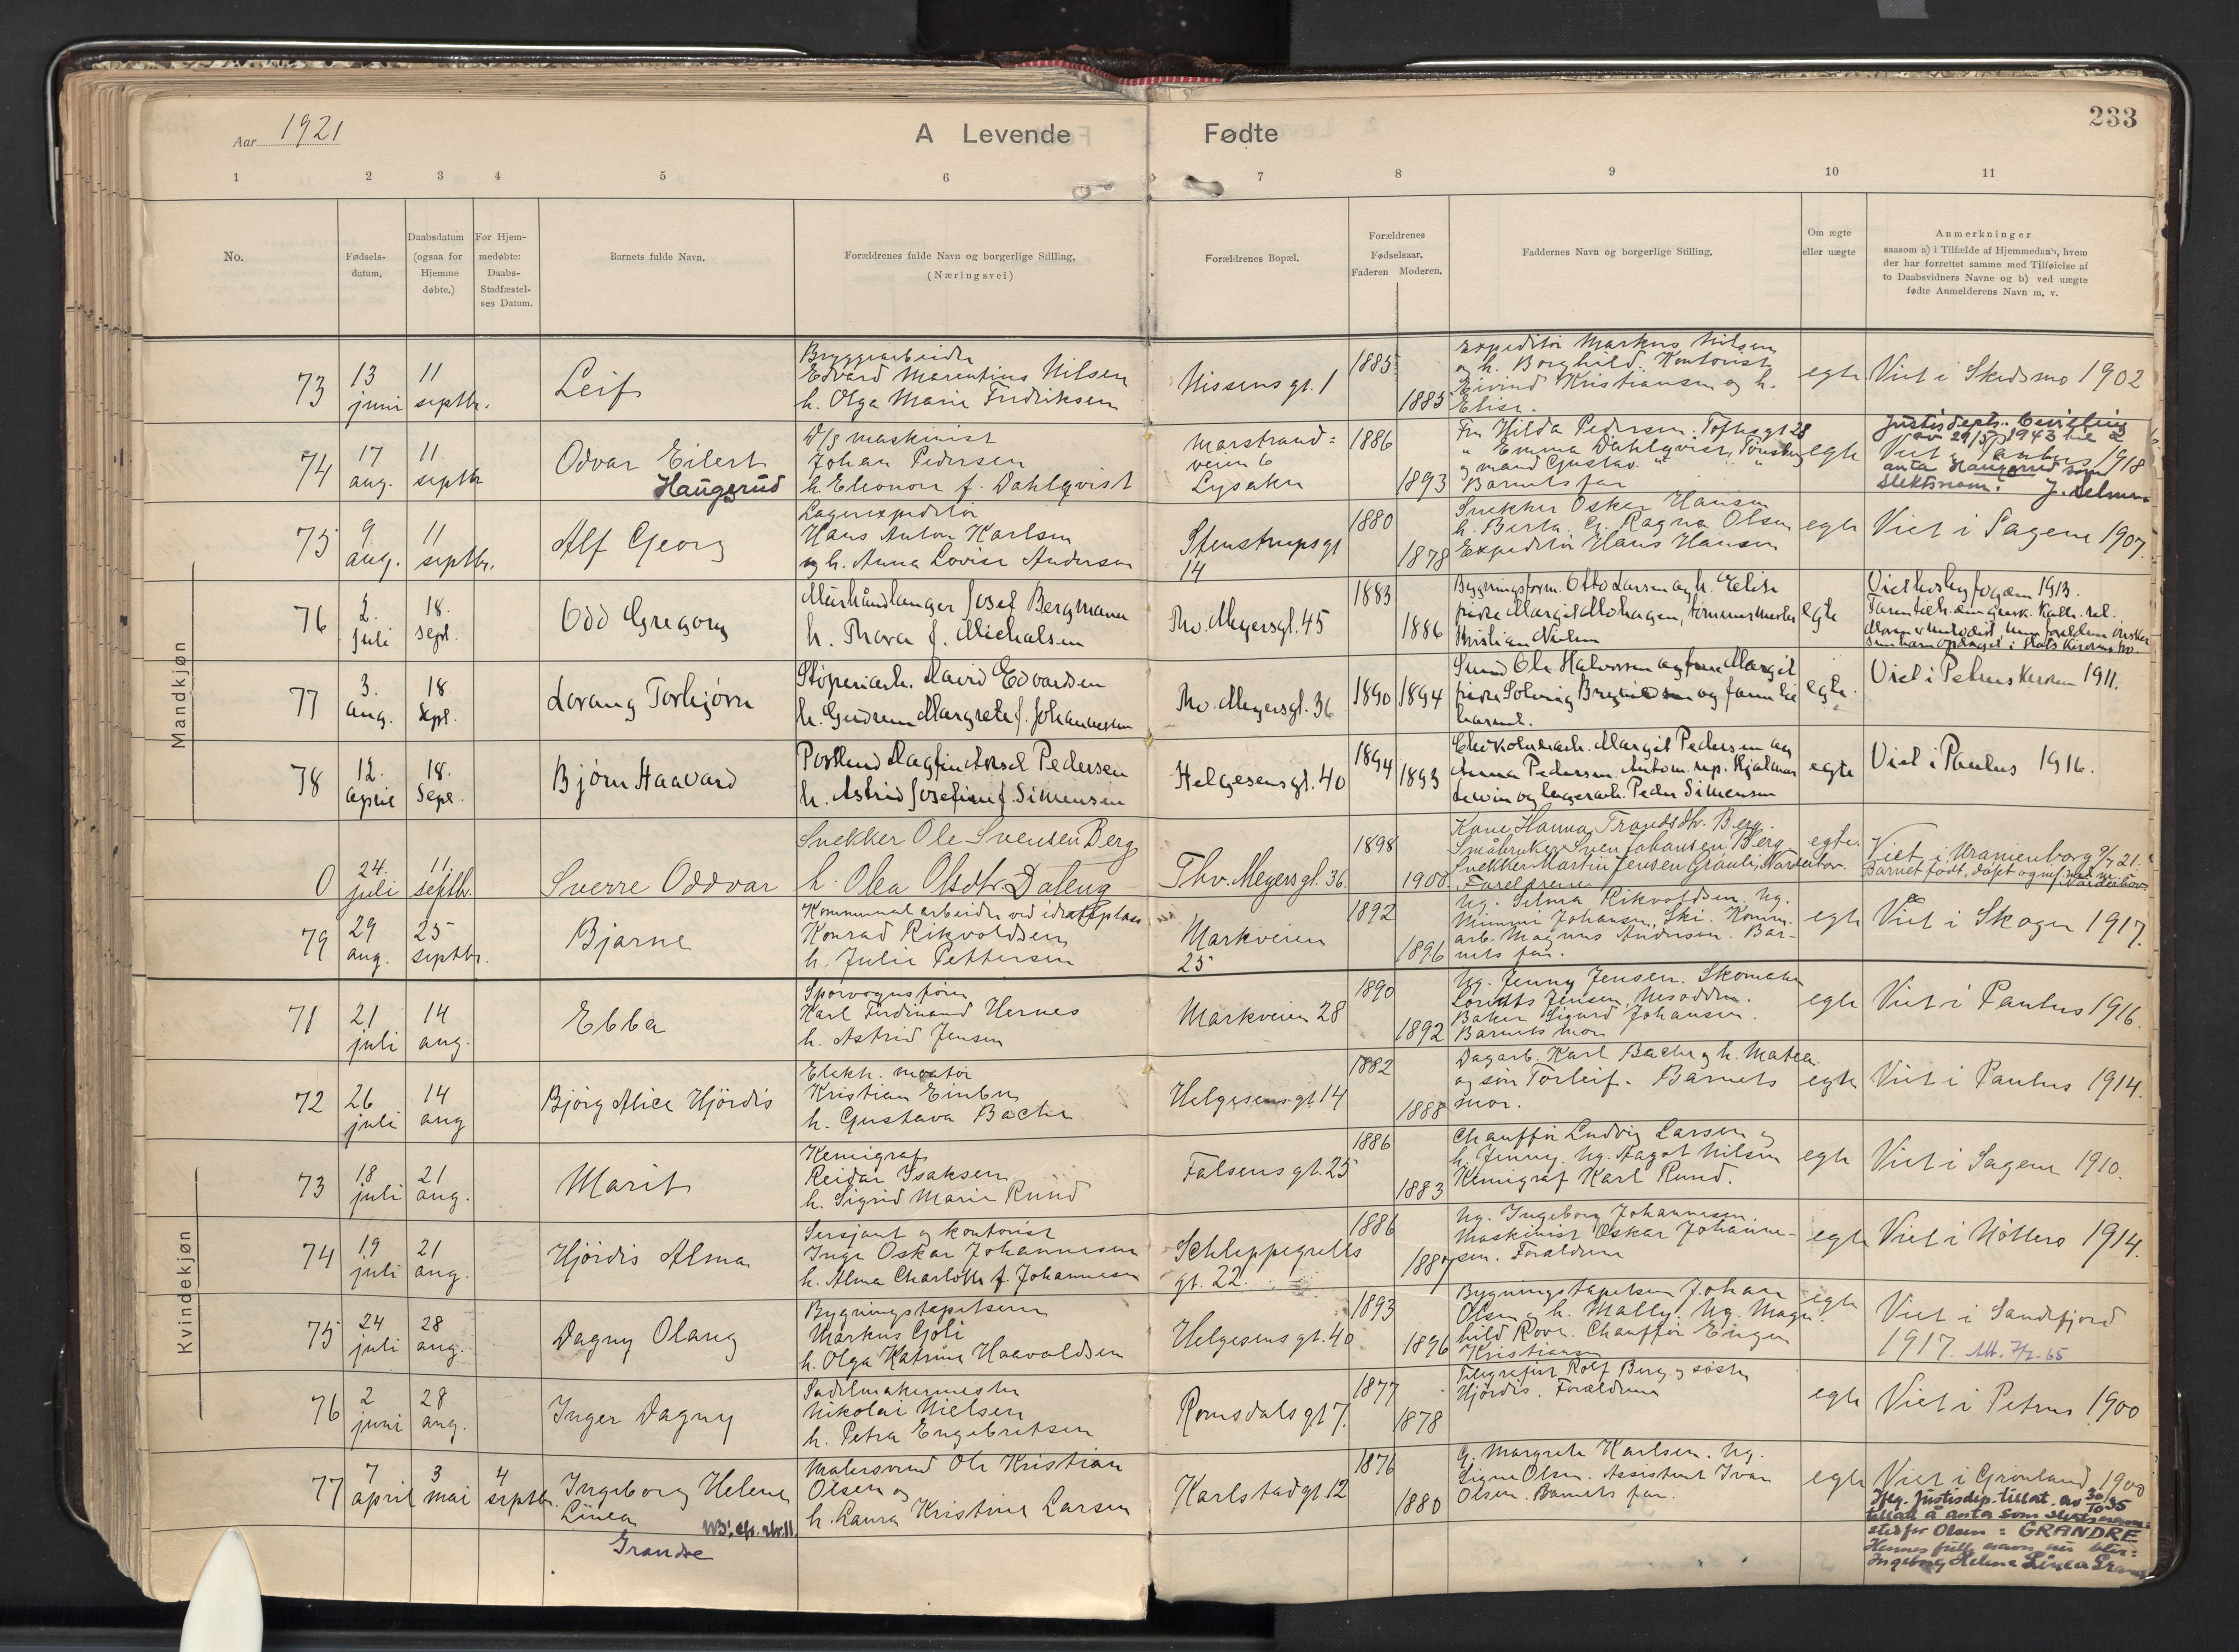 233
Aar 1921
A Levende Fødte
1 2 3 4 5 6 7 8 9 10 11
No.
Fødsels-
datum.
Daabsdatum
(ogsaa for
Hjemme
døbte.)
For Hjem-
medøbte:
Daabs-
Stadfæstel-
ses Datum.
Barnets fulde Navn.
Forældrenes fulde Navn og borgerlige Stilling,
(Næringsvei)
Forældrenes Bopæl.
Forældrenes
Fødselsaar.
Faderen Moderen.
Faddernes Navn og borgerlige Stilling.
Om ægte
eller uægte
Anmerkninger
saasom a) i Tilfælde af Hjemmedaab, hvem
der har forrettet samme med Tilføielse af
to Daabsvidners Navne og b) ved uægte
fødte Anmelderens Navn m. v.
Mandkjøn
73
13
juni
11
septbr.
Leif
Bryggearbeider
Edvard Marentius Nilsen
h. Olga Marie Fredriksen
Nissens gt. 1
1885
1885
Expeditør Markus Nilsen
og h. Borghild. Kontorist
Eivind Kristiansen og h.
Elise.
egte
Viet i Skedsmo 1902
74
17
aug.
11
septbr
Odvar Eilert
Haugerud
D/s maskinist
Johan Pedersen
h. Eleonore f. Dahlqvist
Marstrand=
veien 6
Lysaker
1886
1893
Fru Hilda Pedersen. Toftesgt 28
" Emma Dahlqvist, Tønsberg
og mand Gustav. " "
Barnets far
egte
Justisdepts. bevilling
av 29/5 1943 til å
Viet i Paulus 1918
anta Haugerud som
slektsnavn.
75
9
aug.
11
septbr.
Alf Georg
Lagerexpeditør
Hans Anton Karlsen
og h. Anna Lovise Andersen
Stenstrupsgt
14
1880
1878
Snekker Oskar Hansen
h. Berta. G. Ragna Olsen
Expeditør Hans Hansen
egte
Viet i Sagene 1907.
76
2.
juli
18.
sept.
Odd Gregory
Murhåndlanger Josef Bergmann
h. Thora f. Michalsen
Thv. Meyersgt. 45
1883
1886
Bygningsform. Otto Larsen og h. Elise
frøke Margit Mohagen, tømmermester
Kristian Nielsen
egte
Viet hos byfogden 1913.
77
3.
aug.
18
Sept.
Lorang Torbjørn
Støperiarb. David Edvardsen
h. Gudrun Margrete f. Johannessen
Thv. Meyersgt. 36
1890
1894
Smed Ole Halvorsen og frue Margit
frøke Solveig Brynildsen og faren til
barnet.
egte.
Viet i Petrus kirken 1911.
78
12.
april
18.
Sept.
Bjørn Haavard
Postbud Dagfin Aksel Pedersen
h. Astrid Josefine f. Simensen
Helgesensgt. 40
1894
1893
Chokoladearb. Margit Pedersen og
Anna Pedersen. Autom. rep. Hjalmar
Lewin og lagerarb. Peder Simensen
egte
Viet i Paulus 1916.
0
24.
juli
11.
septbr.
Sverre Oddvar
Snekker Ole Svensen Berg
h. Olea Olsdtr. Daleng
Thv. Meyers gt. 36.
1898
1900
Kone Hanna Trondsdtr. Berg.
Småbruker Sven Johansen Berg
Snekker Martin Jensen Grauli, Norderhov.
Foreldrene
egte.
Viet i Uranienborg 9/7 21.
Barnet født, døpt og inf. med nr. i
Norderhov.
79
29
aug.
25
septbr.
Bjarne
Kommunal arbeider ved idrætsplass
Konrad Rikvoldsen
h. Julie Pettersen
Markveien
25
1892
1896
Ug. Selma Rikvoldsen. Ug.
Mimmi Johansen, Ski. Komm.
arb. Magnus Andersen. Bar-
nets far.
egte
Viet i Skoger 1917.
Kvindekjøn
71
21
juli
14
aug.
Ebba
Sporvognsfører
Karl Ferdinand Hernes
h. Astrid Jensen
Markveien 28
1890
1892
Ug. Jenny Jensen. Skomaker
Lorents Jensen, Nesodden.
Baker Sigurd Johansen.
Barnets mor
egte
Viet i Paulus 1916.
72
26
juli
14
aug
Bjørg Alice Hjördis
Elektr. montør
Kristian Einbu
h. Gustava Bache
Helgesensgt. 14
1882
1888
Dagarb. Karl Bache og h. Matea.
og søn Torleif. Barnets
mor.
egte
Viet i Paulus 1914.
73
18
juli
21
aug.
Marit
Kemigraf
Reidar Isaksen
h. Sigrid Marie Rund
Falsens gt. 25
1886
1883
Chauffør Ludvig Larsen og
h. Jenny. Ug. Aagot Nilsen
Kemigraf Karl Rund.
egte
Viet i Sagene 1910.
74
19
juli
21
aug.
Hjördis Alma
Sersjant og kontorist
Inge Oskar Johannesen
h. Alma Charlotte f. Johannesen
Schleppegrells
gt. 22.
1886
1887
Ug. Ingeborg Johannesen.
Maskinist Oskar Johanne-
sen. Forældrene
egte
Viet i Nötterö 1914.
75
24
juli
28
aug.
Dagny Olaug
Bygningstapetserer
Markus Goli
h. Olga Katrine Haavaldsen
Helgesens gt. 40
1893
1896
Bygningstapetser Johan
Olsen og h. Mally. Ug. Magn-
hild Rove. Chauffør Eugen
Kristiansen
egte
Viet i Sandefjord
1917.
76
2
juni
28
aug.
Inger Dagny
Sadelmakermester
Nikolai Nielsen
h. Petra Engebretsen
Romsdals gt 7.
1877
1878
Telegrafist Rolf Berg og søster
Hjördis. Forældrene
egte
Viet i Petrus 1900
77
7
april
3
mai
4
septbr.
Ingeborg Helene
Linea
NB! cfr. rbr. 11
Grandre
Malersvend Ole Kristian
Olsen og
h. Laura Kristine Larsen
Karlstadgt 12
1876
1880
G. Margrete Karlsen. Ug.
Signe Olsen. Assistent Ivar
Olsen. Barnets far.
egte
Viet i Grønland 1900
Iflg. Justisdep. tillat. av 30/10 35
tillatt å anta som slektsnavn
sted for Olsen = GRANDRE
Hennes fulle navn nu blir:
Ingeborg Helene Linea Grand